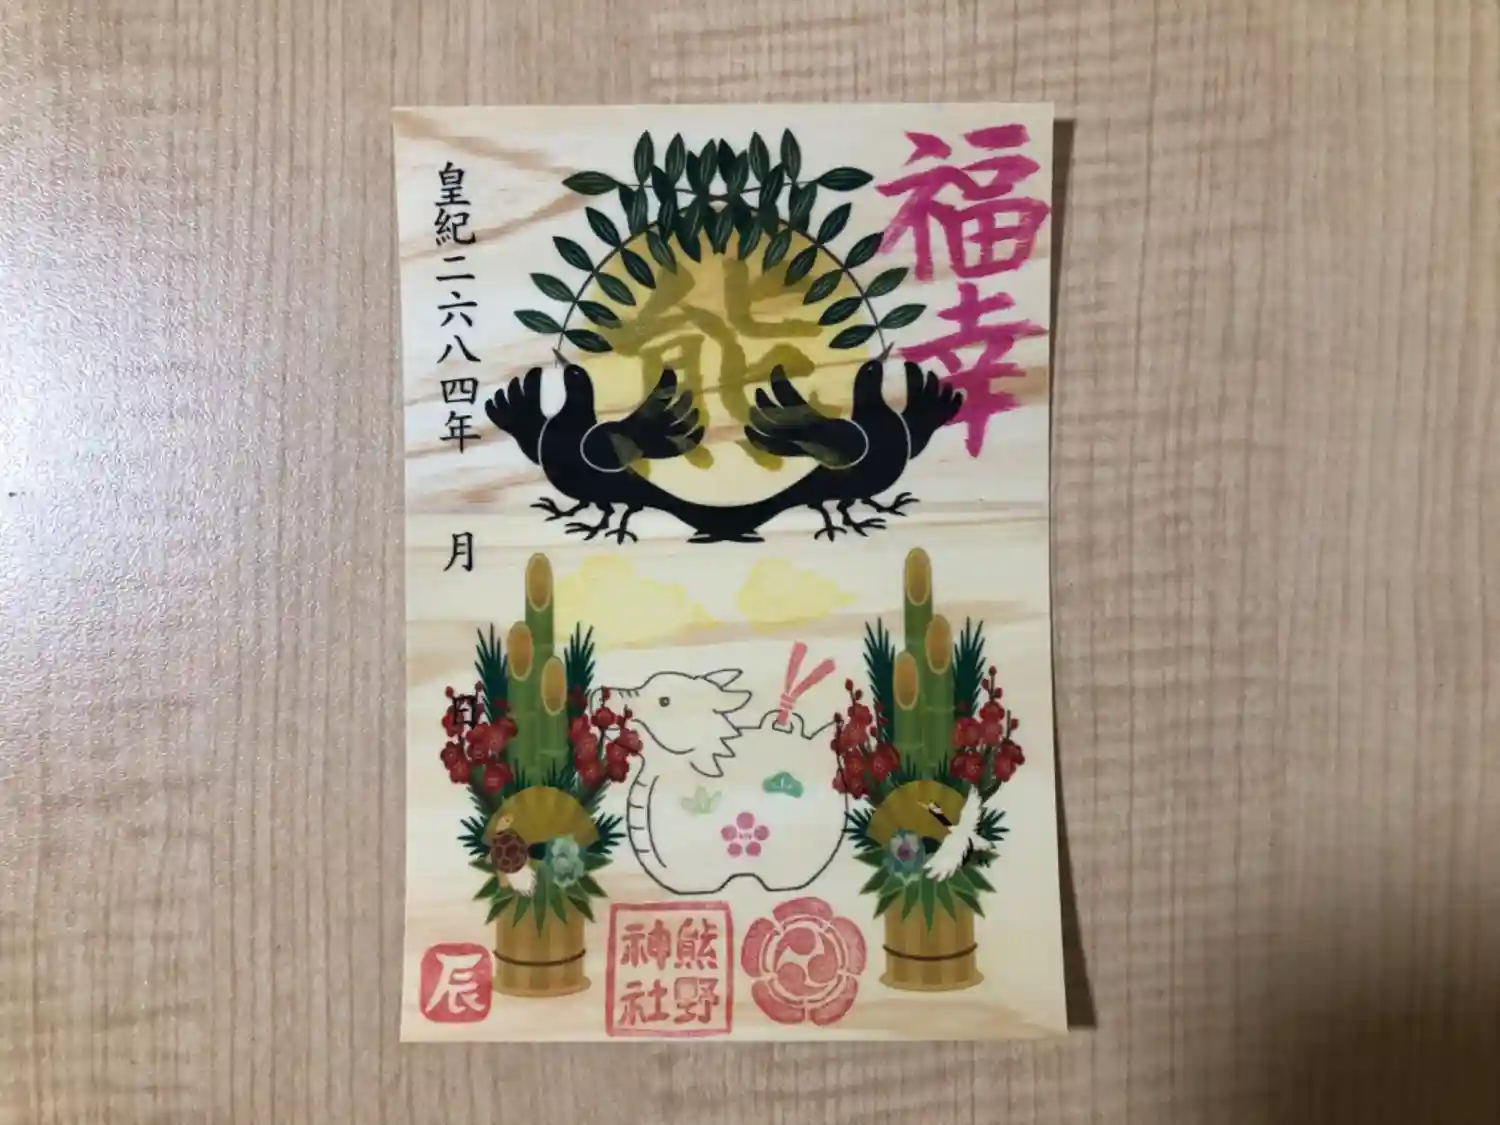 福幸
熊
皇紀二六八四年 月 日
熊野
神社
辰